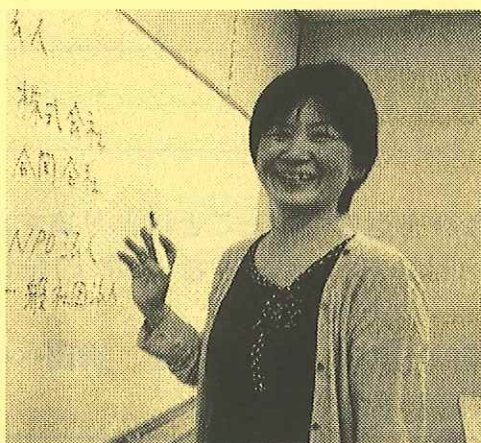 株式会社
合同会社
NPO法人
一般社団法人